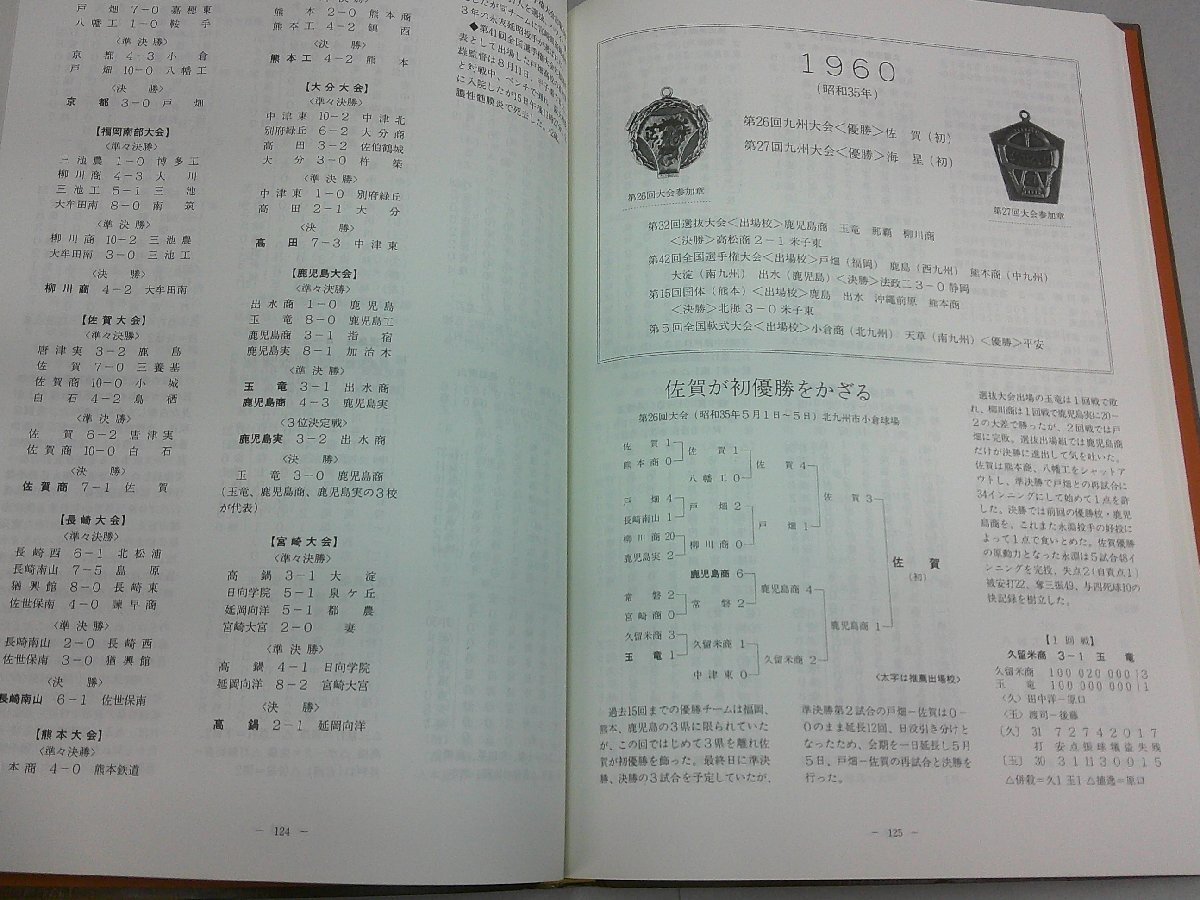 戸 畑 7-0 嘉穂東
八幡工 1-0 鞍 手
〈準決勝〉
京 都 4-3 小 倉
戸 畑 10-0 八幡工
〈決 勝〉
京 都 3-0 戸 畑
【福岡南部大会】
〈準々決勝〉
三池農 1-0 博多工
柳川商 4-3 大 川
三池工 5-1 三 池
大牟田南 8-0 南 筑
〈準決勝〉
柳川商 10-2 三池農
大牟田南 3-0 三池工
〈決 勝〉
柳川商 4-2 大牟田南
【佐賀大会】
〈準々決勝〉
唐津実 3-2 鹿 島
佐 賀 7-0 三養基
佐賀商 10-0 小 城
白 石 4-2 鳥 栖
〈準決勝〉
佐 賀 6-2 唐津実
佐賀商 10-0 白 石
〈決 勝〉
佐賀商 7-1 佐 賀
【長崎大会】
〈準々決勝〉
長崎西 6-1 北松浦
長崎南山 7-5 島 原
猶興館 8-0 長崎東
佐世保南 4-0 諫早商
〈準決勝〉
長崎南山 2-0 長崎西
佐世保南 3-0 猶興館
〈決 勝〉
長崎南山 6-1 佐世保南
【熊本大会】
〈準々決勝〉
本商 4-0 熊本鉄道
熊 本 2-0 熊本商
熊本工 4-2 鎮 西
〈決 勝〉
熊本工 4-2 熊 本
【大分大会】
〈準々決勝〉
中津東 10-2 中津北
別府緑丘 6-2 大分商
高 田 3-2 佐伯鶴城
大 分 3-0 杵 築
〈準決勝〉
中津東 1-0 別府緑丘
高 田 2-1 大 分
〈決 勝〉
高 田 7-3 中津東
【鹿児島大会】
〈準々決勝〉
出水商 1-0 鹿児島
玉 竜 8-0 鹿児島工
鹿児島商 3-1 指 宿
鹿児島実 8-1 加治木
〈準決勝〉
玉 竜 3-1 出水商
鹿児島商 4-3 鹿児島実
〈3位決定戦〉
鹿児島実 3-2 出水商
〈決 勝〉
玉 竜 3-0 鹿児島商
(玉竜、鹿児島商、鹿児島実の3校
が代表)
【宮崎大会】
〈準々決勝〉
高 鍋 3-1 大 淀
日向学院 5-1 泉ケ丘
延岡向洋 5-1 都 農
宮崎大宮 2-0 妻
〈準決勝〉
高 鍋 4-1 日向学院
延岡向洋 8-2 宮崎大宮
〈決 勝〉
高 鍋 2-1 延岡向洋
◆第41回全国選手権大会
表として出場した戸畑高校
録監督は8月11日、
と対戦中、ベンチで倒れ
に入院したが15日午後
膿性髄膜炎で死去した。
- 124 -
1960
(昭和35年)
第26回九州大会<優勝>佐 賀(初)
第27回九州大会<優勝>海 星(初)
第26回大会参加章
第27回大会参加章
第32回選抜大会<出場校>鹿児島商 玉竜 那覇 柳川商
<決勝>高松商2-1米子東
第42回全国選手権大会<出場校>戸畑(福岡) 鹿島(西九州) 熊本商(中九州)
大淀(南九州) 出水(鹿児島)<決勝>法政二3-0静岡
第15回国体(熊本)<出場校>鹿島 出水 沖縄前原 熊本商
<決勝>北海3-0米子東
第5回全国軟式大会<出場校>小倉商(北九州) 天草(南九州)<優勝>平安
佐賀が初優勝をかざる
第26回大会(昭和35年5月1日~5日)北九州市小倉球場
佐 賀 1
熊本商 0
佐 賀 1
八幡工 0
佐 賀 4
戸 畑 4
長崎南山 1
戸 畑 2
柳川商 20
鹿児島実 2
柳川商 0
戸 畑 1
佐 賀 3
鹿児島商 6
常 磐 2
宮崎商 0
常 磐 2
鹿児島商 4
久留米商 3
玉 竜 1
久留米商 1
中津東 0
久留米商 2
鹿児島商 1
佐 賀
(初)
<太字は推薦出場校>
過去15回までの優勝チームは福岡、
熊本、鹿児島の3県に限られていた
が、この回ではじめて3県を離れ佐
賀が初優勝を飾った。最終日に準決
勝、決勝の3試合を予定していたが、
準決勝第2試合の戸畑-佐賀は0-
0のまま延長12回、日没引き分けと
なったため、会期を一日延長し5月
5日、戸畑-佐賀の再試合と決勝を
行った。
選抜大会出場の玉竜は1回戦で敗
れ、柳川商は1回戦で鹿児島実に20-
2の大差で勝ったが、2回戦では戸
畑に完敗。選抜出場組では鹿児島商
だけが決勝に進出して気を吐いた。
佐賀は熊本商、八幡工をシャットア
ウトし、準決勝で戸畑との再試合に
34イニングにして始めて1点を許
した。決勝では前回の優勝校・鹿児
島商を、これまた永淵投手の好投に
よって1点で食いとめた。佐賀優勝
の原動力となった永淵は5試合48イ
ニングを完投、失点2(自責点1)
被安打22、奪三振43、与四死球10の
快記録を樹立した。
【1回戦】
久留米商 3-1 玉 竜
久留米商 100 020 000 | 3
玉 竜 100 000 000 | 1
<久>田中洋-原口
<玉>渡司-後藤
〔久〕31 7 2 7 4 2 0 1 7
打 安点振球犠盗失残
〔玉〕30 3 1 11 3 0 0 1 5
△併殺=久1玉1△捕逸=原口
- 125 -